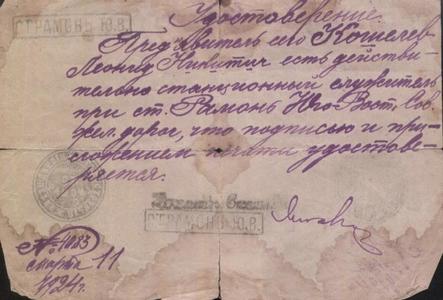 Удостоверение.
СТ. РАМОНЬ Ю.В.
Предъявитель сего Кошелев
Леонид Никитич есть действи-
тельно станционный служитель
при ст. Рамонь Юго-Вост. Сов.
жел. дорог, что подписью и при-
ложением печати удостове-
ряется.
СТ. РАМОНЬ Ю.В.
№ 1083
марта 11
1924 г.